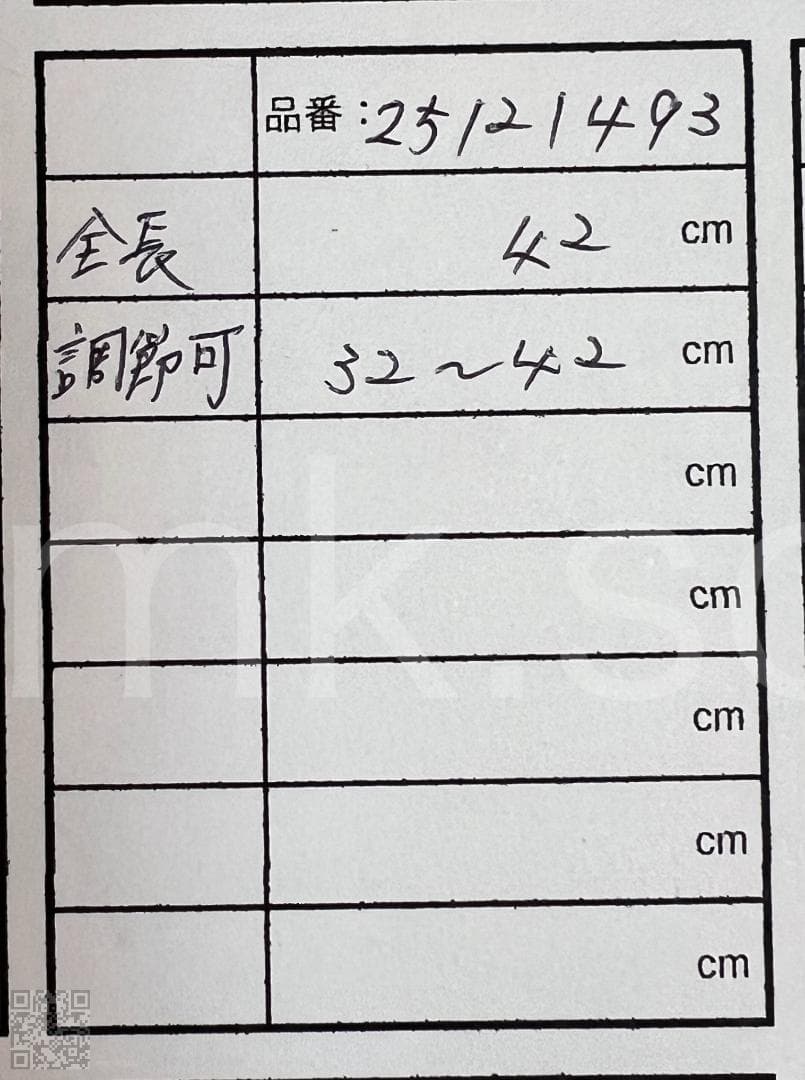 品番：25121493
全長 42 cm
調節可 32～42 cm
cm
cm
cm
cm
cm
mk.s